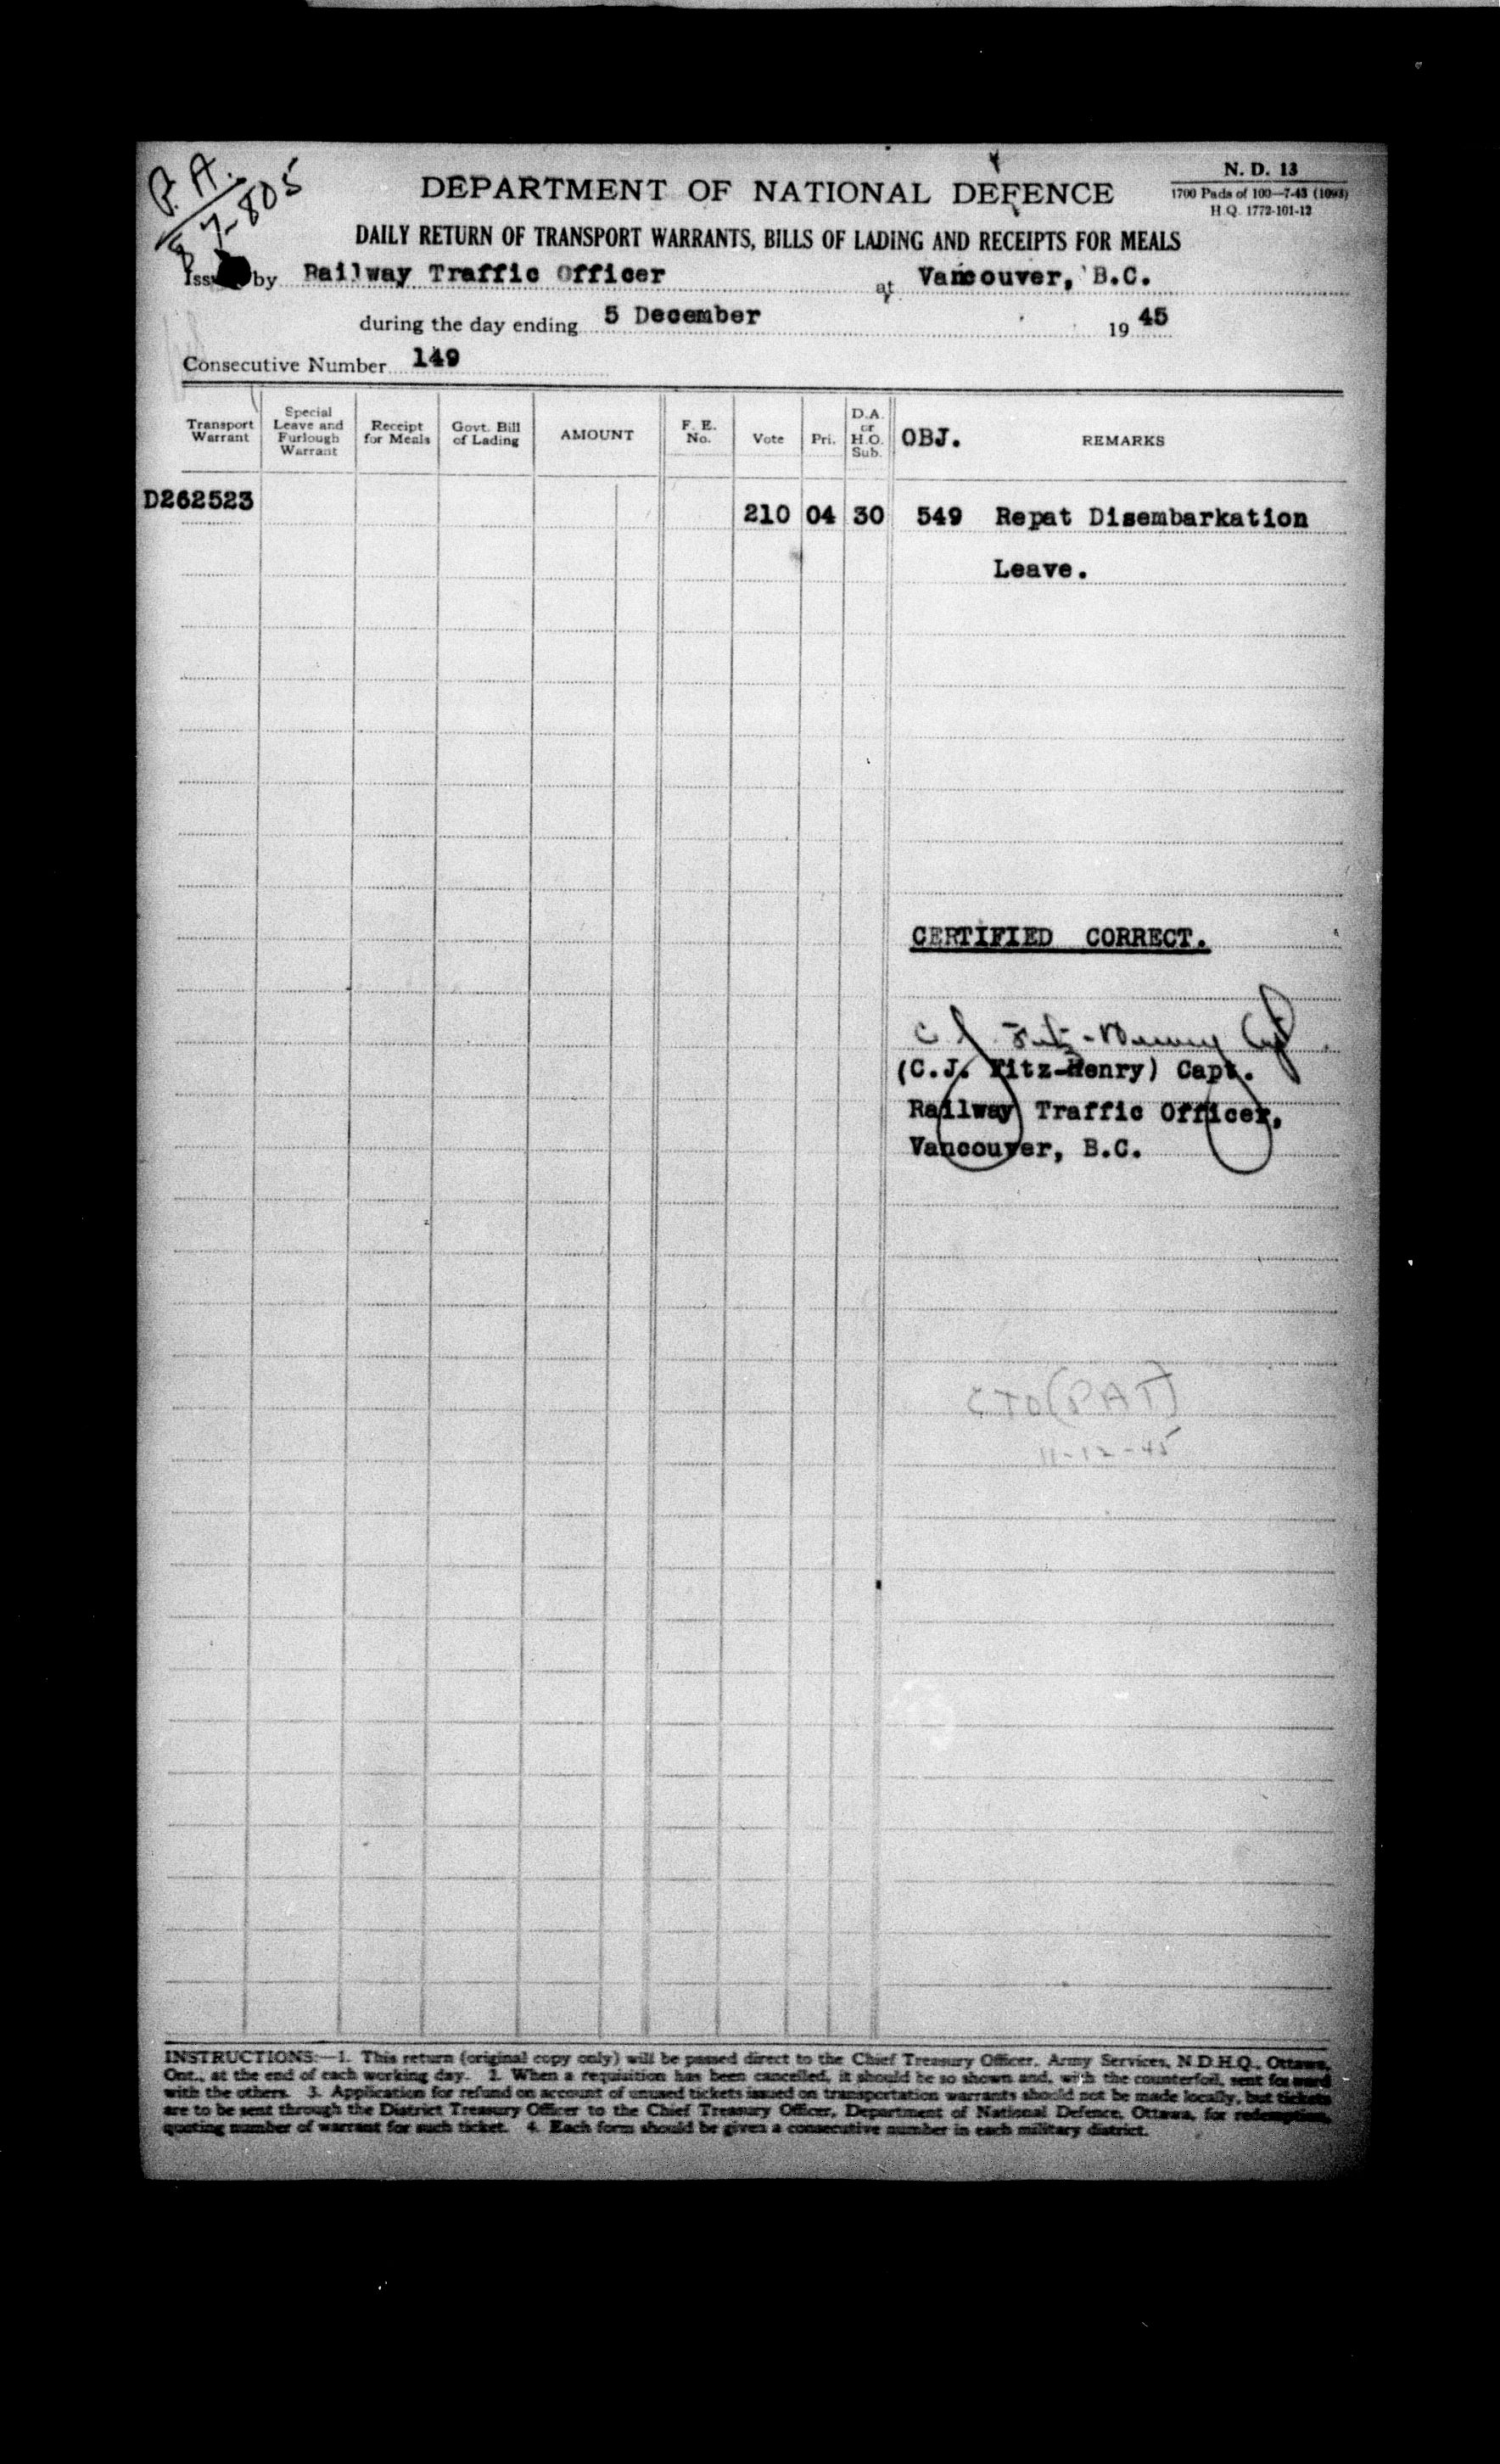 P. A.
7-805
N. D. 13
1700 Pads of 100—7-43 (1093)
H.Q. 1772-101-12
DEPARTMENT OF NATIONAL DEFENCE
DAILY RETURN OF TRANSPORT WARRANTS, BILLS OF LADING AND RECEIPTS FOR MEALS
by Railway Traffic Officer at Vancouver, B.C.
during the day ending 5 December 19 45
Consecutive Number 149
Transport Warrant Special Leave and Furlough Warrant Receipt for Meals Govt. Bill of Lading AMOUNT F. E. No. Vote Pri. D.A. or H.O. Sub. OBJ. REMARKS
D262523 210 04 30 549 Repat Disembarkation
Leave.
CERTIFIED CORRECT.
C J Fitz-Henry Capt
(C.J. Fitz-Henry) Capt.
Railway Traffic Officer,
Vancouver, B.C.
CTO (PAT)
11-12-45
INSTRUCTIONS:—1. This return (original copy only) will be passed direct to the Chief Treasury Officer, Army Services, N.D.H.Q., Ottawa,
Ont., at the end of each working day. 2. When a requisition has been cancelled, it should be so shown and, with the counterfoil, sent forward
with the others. 3. Application for refund on account of unused tickets issued on transportation warrants should not be made locally, but tickets
are to be sent through the District Treasury Officer to the Chief Treasury Officer, Department of National Defence, Ottawa, for redemption,
quoting number of warrant for such ticket. 4. Each form should be given a consecutive number in each military district.